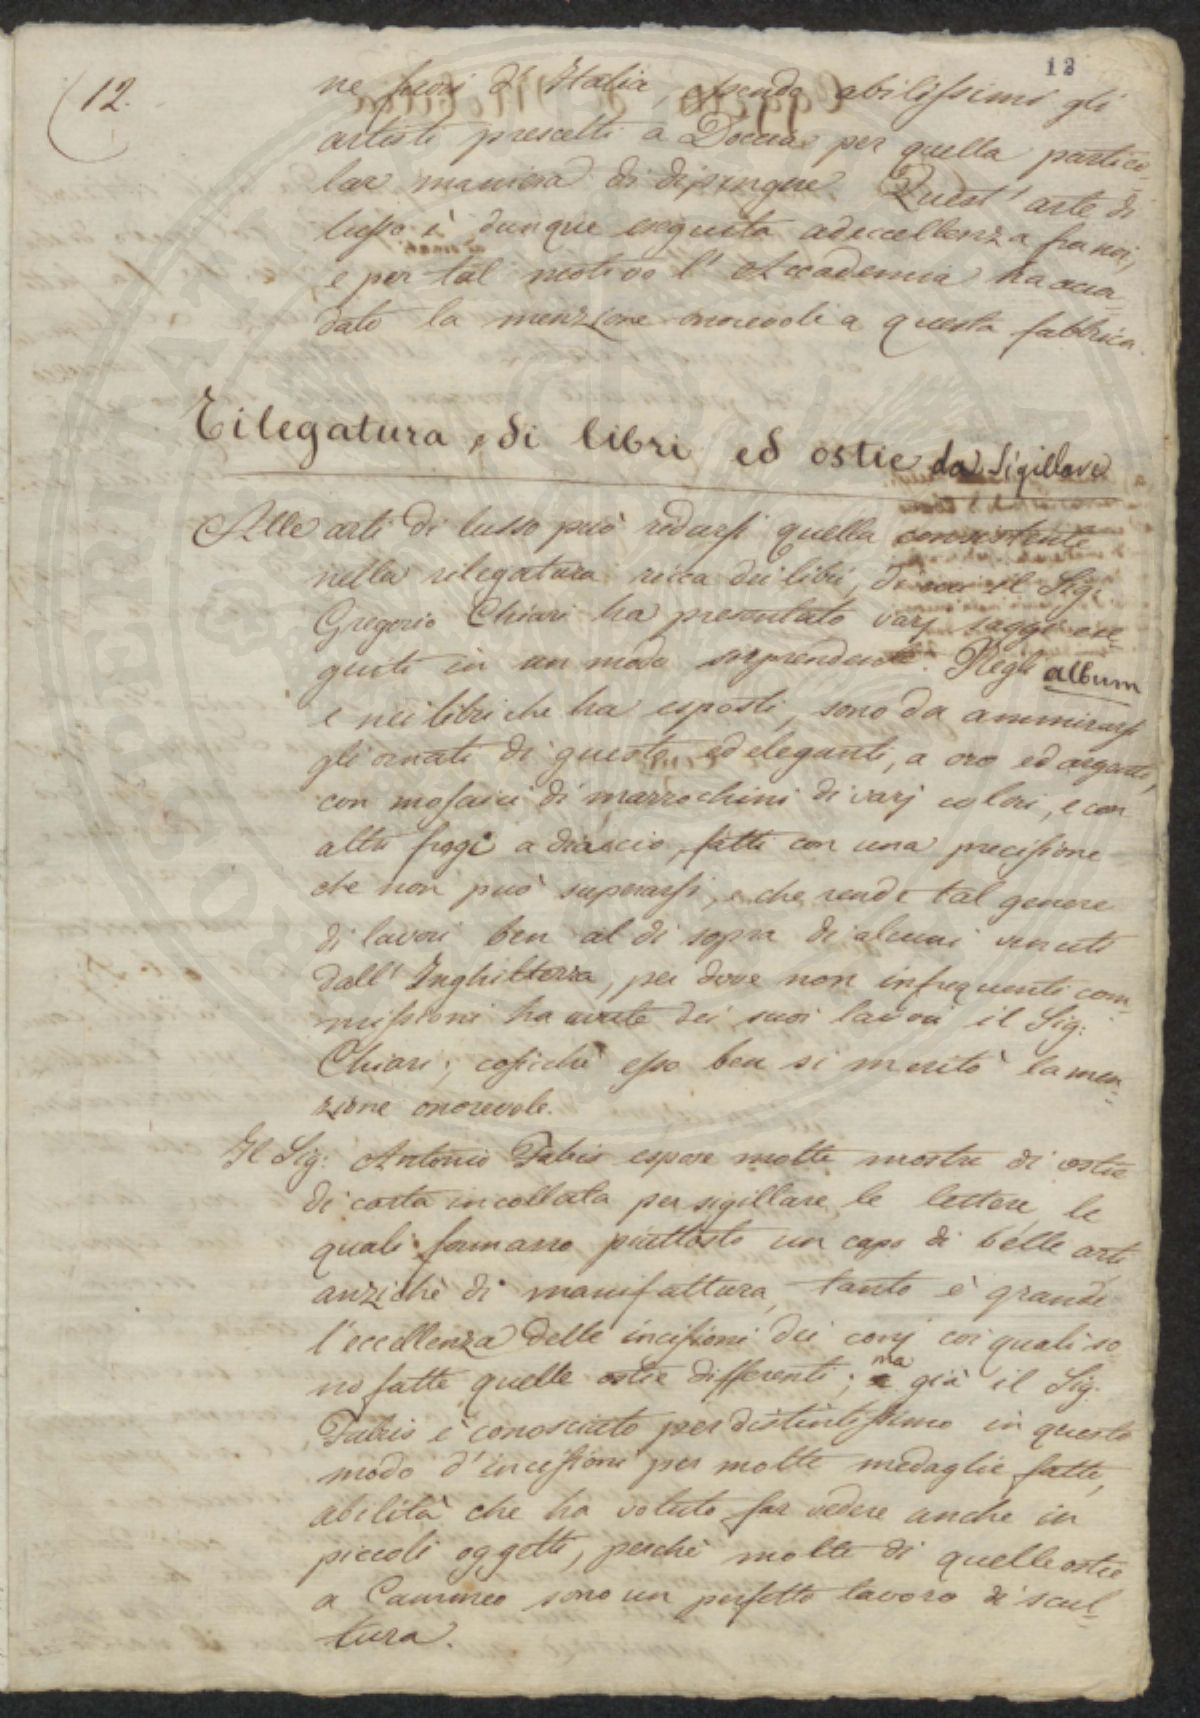 12
12.
ne fuori d'Italia, essendo abilissimi gli
artisti prescelti a Doccia per quella partico-
lar maniera di dipingere. Quest'arte di
lusso è dunque eseguita ad eccellenza fra noi,
e per tal motivo l'Accademia ha accor-
dato la menzione onorevole a questa fabbrica.
Rilegatura, di libri ed ostie da Sigillare
Alle arti di lusso può ridursi quella consistente
nella rilegatura ricca dei libri, di cui il Sig:
Gregorio Chiari ha presentato varj saggi ese-
guiti in un modo sorprendente. Negli album
e nei libri che ha esposti, sono da ammirarsi
gli ornati di gusto ed eleganti, a oro ed argento,
con mosaici di marrochini di varj colori, e con
altri fregi a diaccio, fatti con una precisione
che non può superarsi, e che rende tal genere
di lavori ben al di sopra di alcuni venuti
dall'Inghilterra, per dove non infrequenti com-
missioni ha avute dei suoi lavori il Sig:
Chiari; cosichè esso ben si meritò la men-
zione onorevole.
Il Sig: Antonio Fabris espose molte mostre di ostie
di carta incollata per sigillare le lettere le
quali formano piuttosto un capo di belle arti
anzichè di manifattura, tanto è grande
l'eccellenza delle incisioni dei conj coi quali so-
no fatte quelle ostie differenti; ma già il Sig.
Fabris è conosciuto per distintissimo in questo
modo d'incisioni per molte medaglie fatte,
abilità che ha voluto far vedere anche in
piccoli oggetti, perchè molte di quelle ostie
a Cammeo sono un perfetto lavoro di scul-
tura.